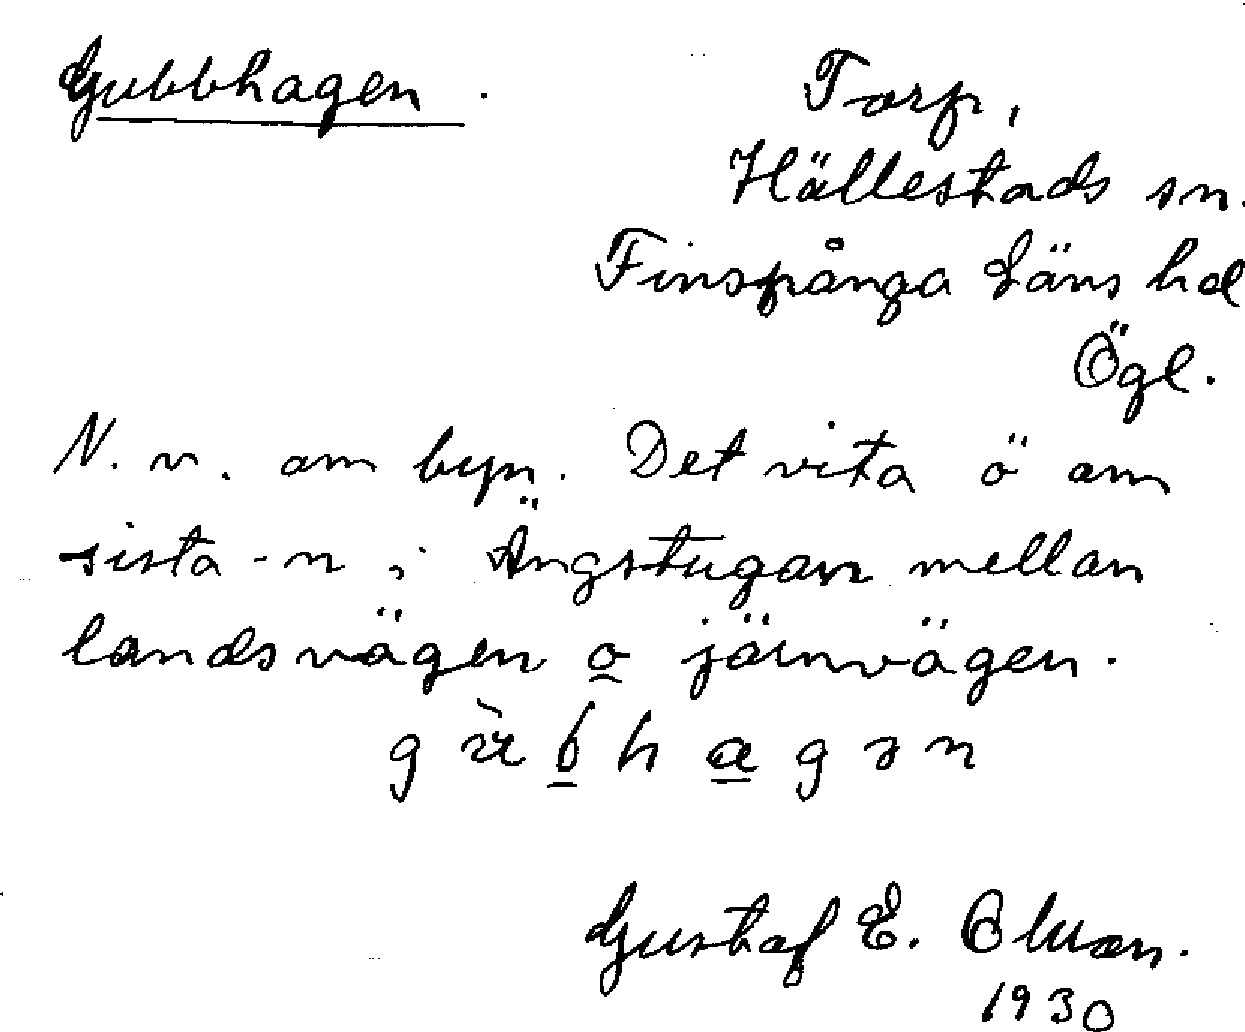 Gubbhagen.
Torp,
Hällestads sn.
Finspånga Läns hd
Ögl.
N. v. om byn. Det vita ö om
sista -n i Ängstugan mellan
landsvägen o järnvägen.
gùbhagən
Gustaf E. Olsson.
1930